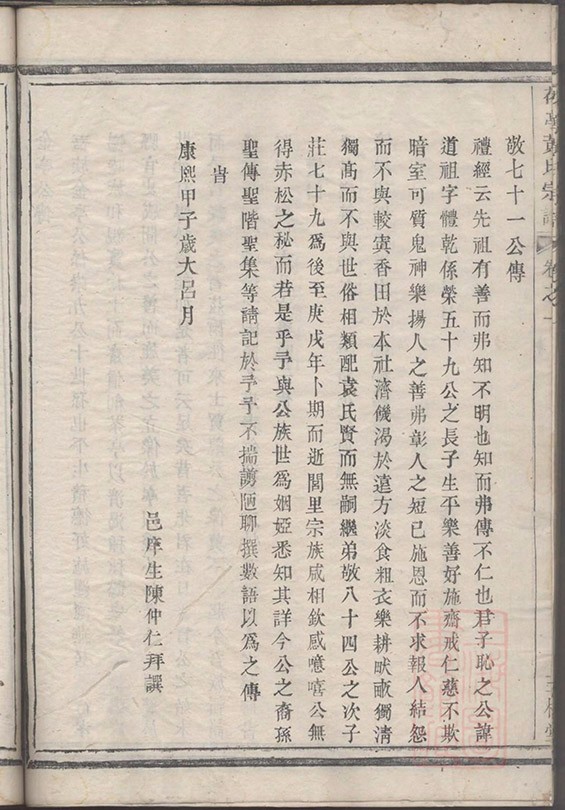 敬七十一公傳
禮經云先祖有善而弗知不明也知而弗傳不仁也君子恥之公諱
道祖字體乾係榮五十九公之長子生平樂善好施齋戒仁慈不欺
暗室可質鬼神樂揚人之善弗彰人之短已施恩而不求報人結怨
而不與較寘香田於本社濟饑渴於遠方淡食粗衣樂耕畎畝獨清
獨高而不與世俗相類配袁氏賢而無嗣繼弟敬八十四公之次子
莊七十九為後至庚戌年卜期而逝閭里宗族咸相欽感噫嘻公無
得赤松之秘而若是乎予與公族世為姻婭悉知其詳今公之裔孫
聖傳聖階聖集等請記於予予不揣謭陋聊撰數語以為之傳
旹
康熙甲子歲大呂月
邑庠生陳仲仁拜譔
黃氏宗譜
卷之一